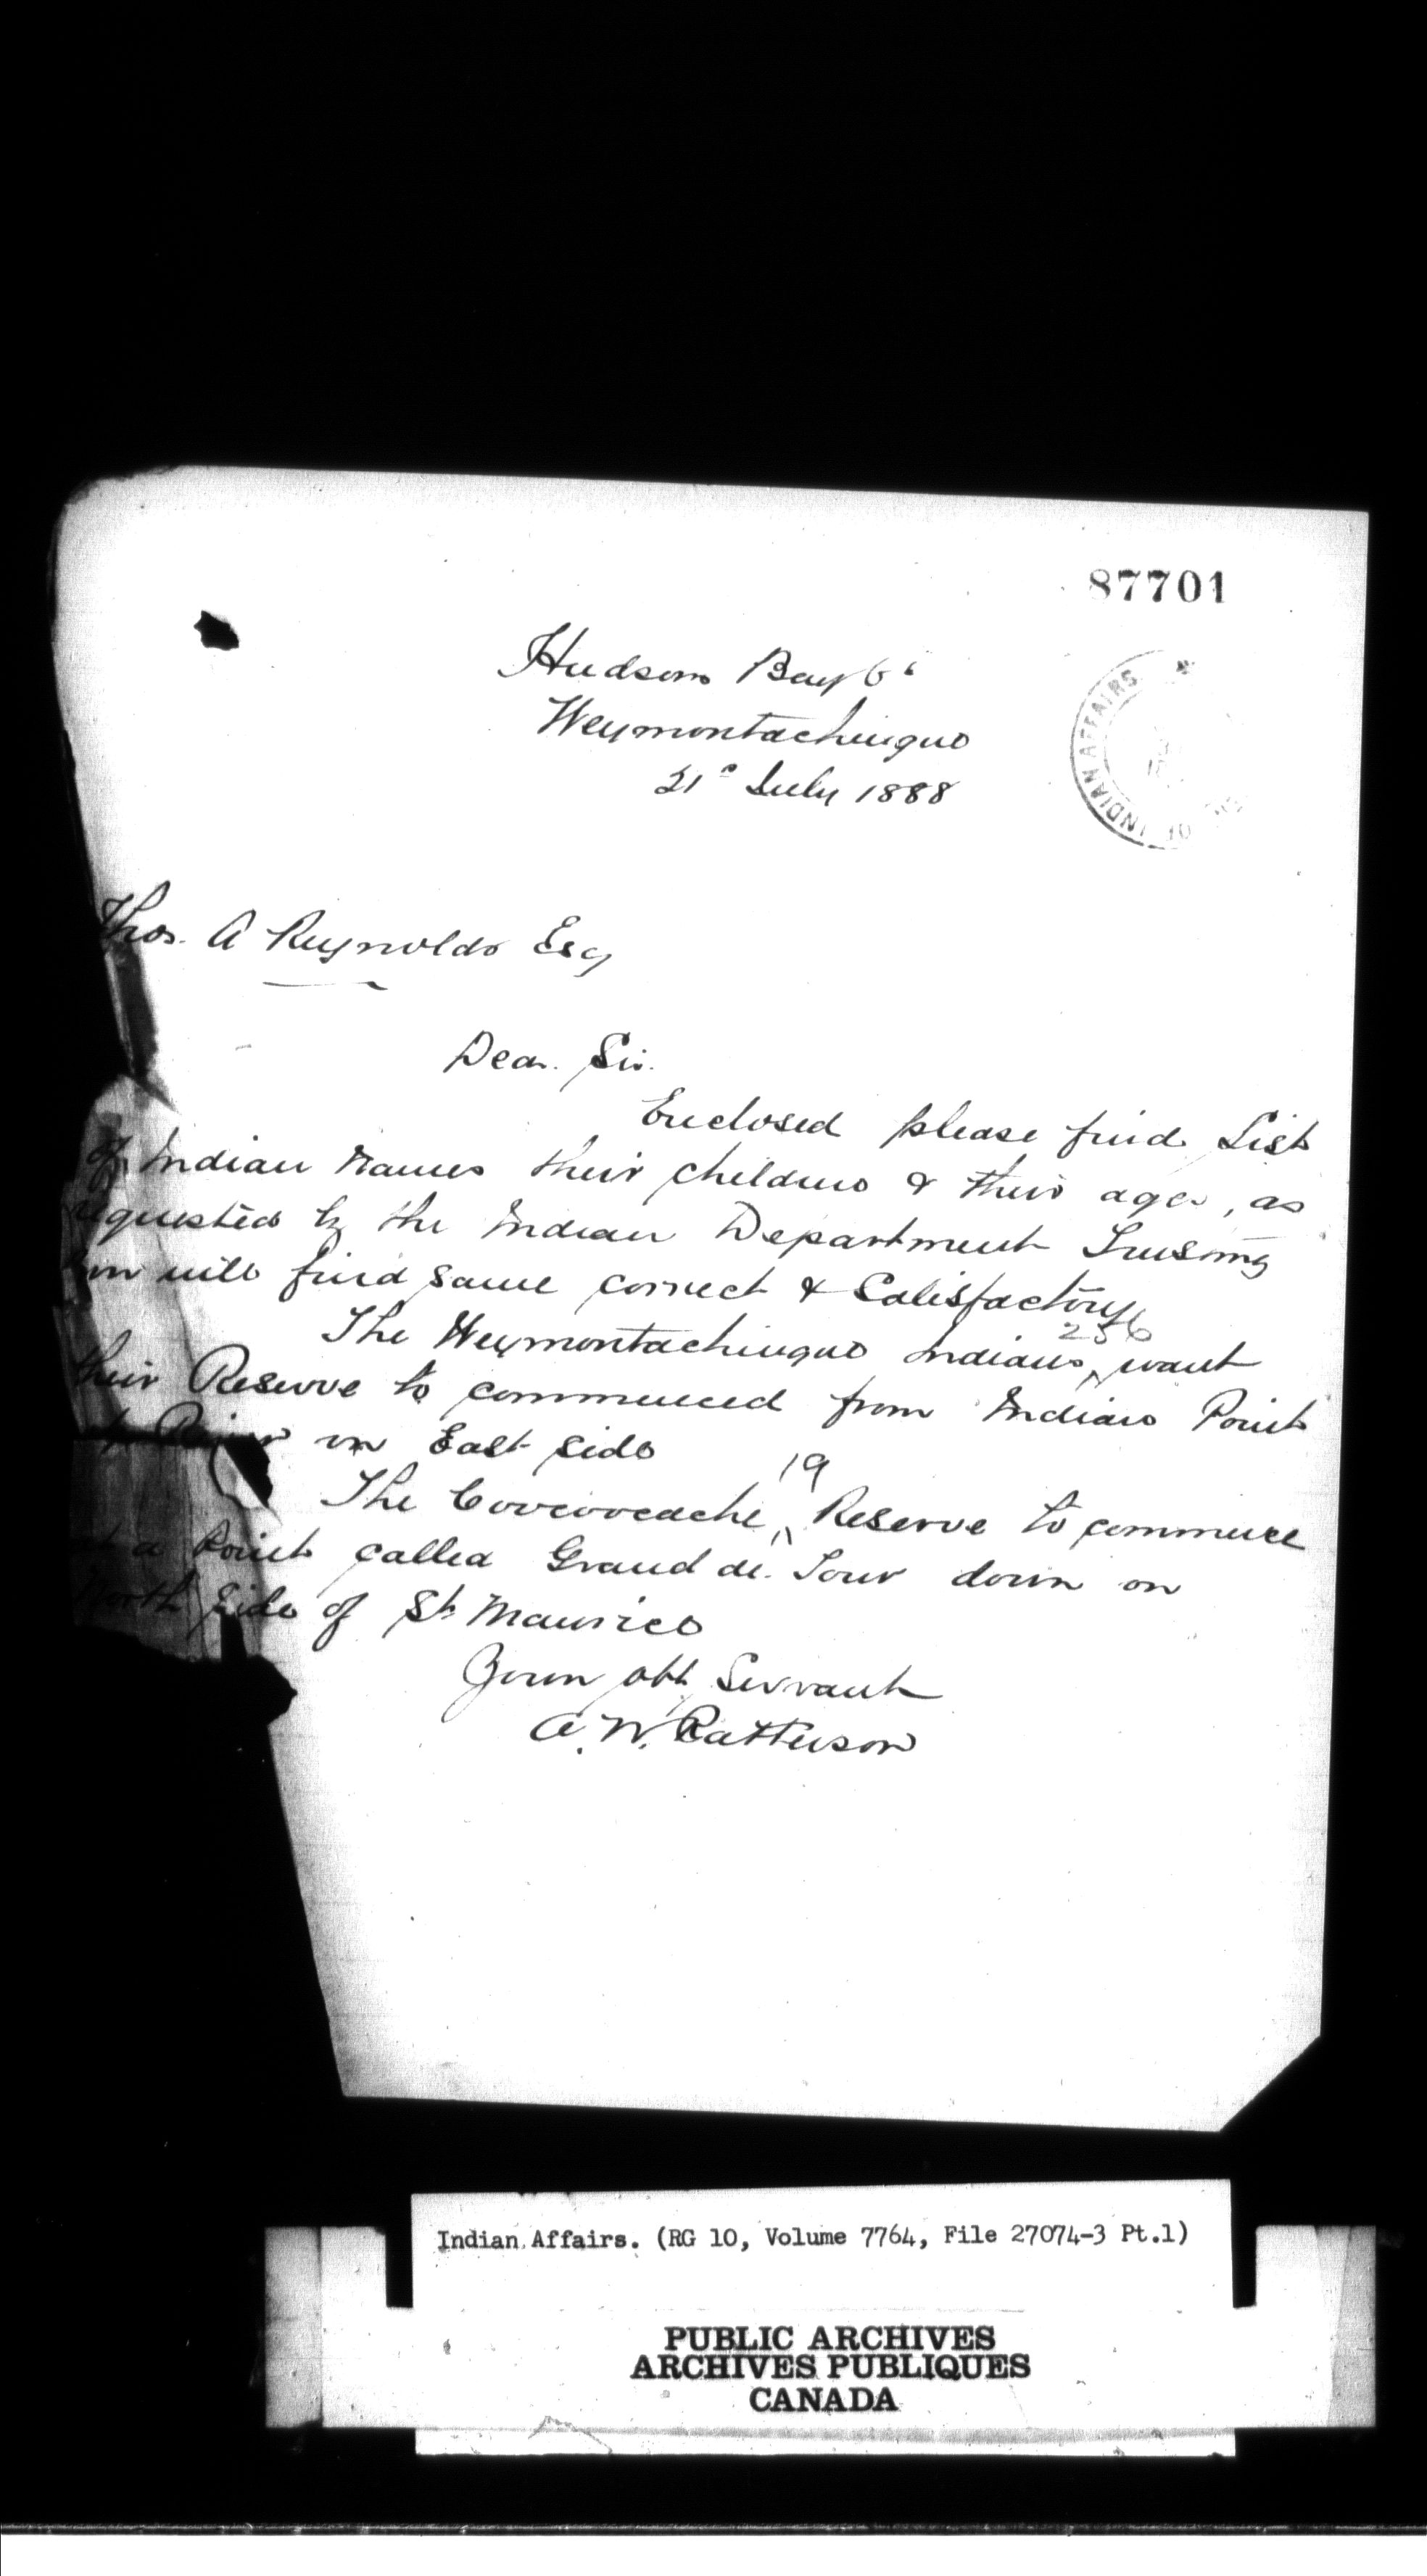 87701
Hudsons Bay Co
Weymontachingue
21st July 1888
OF INDIAN AFFAIRS
Thos. A Reynolds Esq
Dear Sir.
Enclosed please find List
of Indian names their children & their ages, as
requested by the Indian Department Trusting
you will find same correct & Satisfactory
256
The Weymontachingue Indians, want
their Reserve to commenced from Indian Point
up River on East side
19
The Coocoocache, Reserve to commence
at a Point called Grand de. Tour down on
North Side of St Maurice
Your obt Servant
A. W. Patterson
Indian Affairs. (RG 10, Volume 7764, File 27074-3 Pt.1)
PUBLIC ARCHIVES
ARCHIVES PUBLIQUES
CANADA